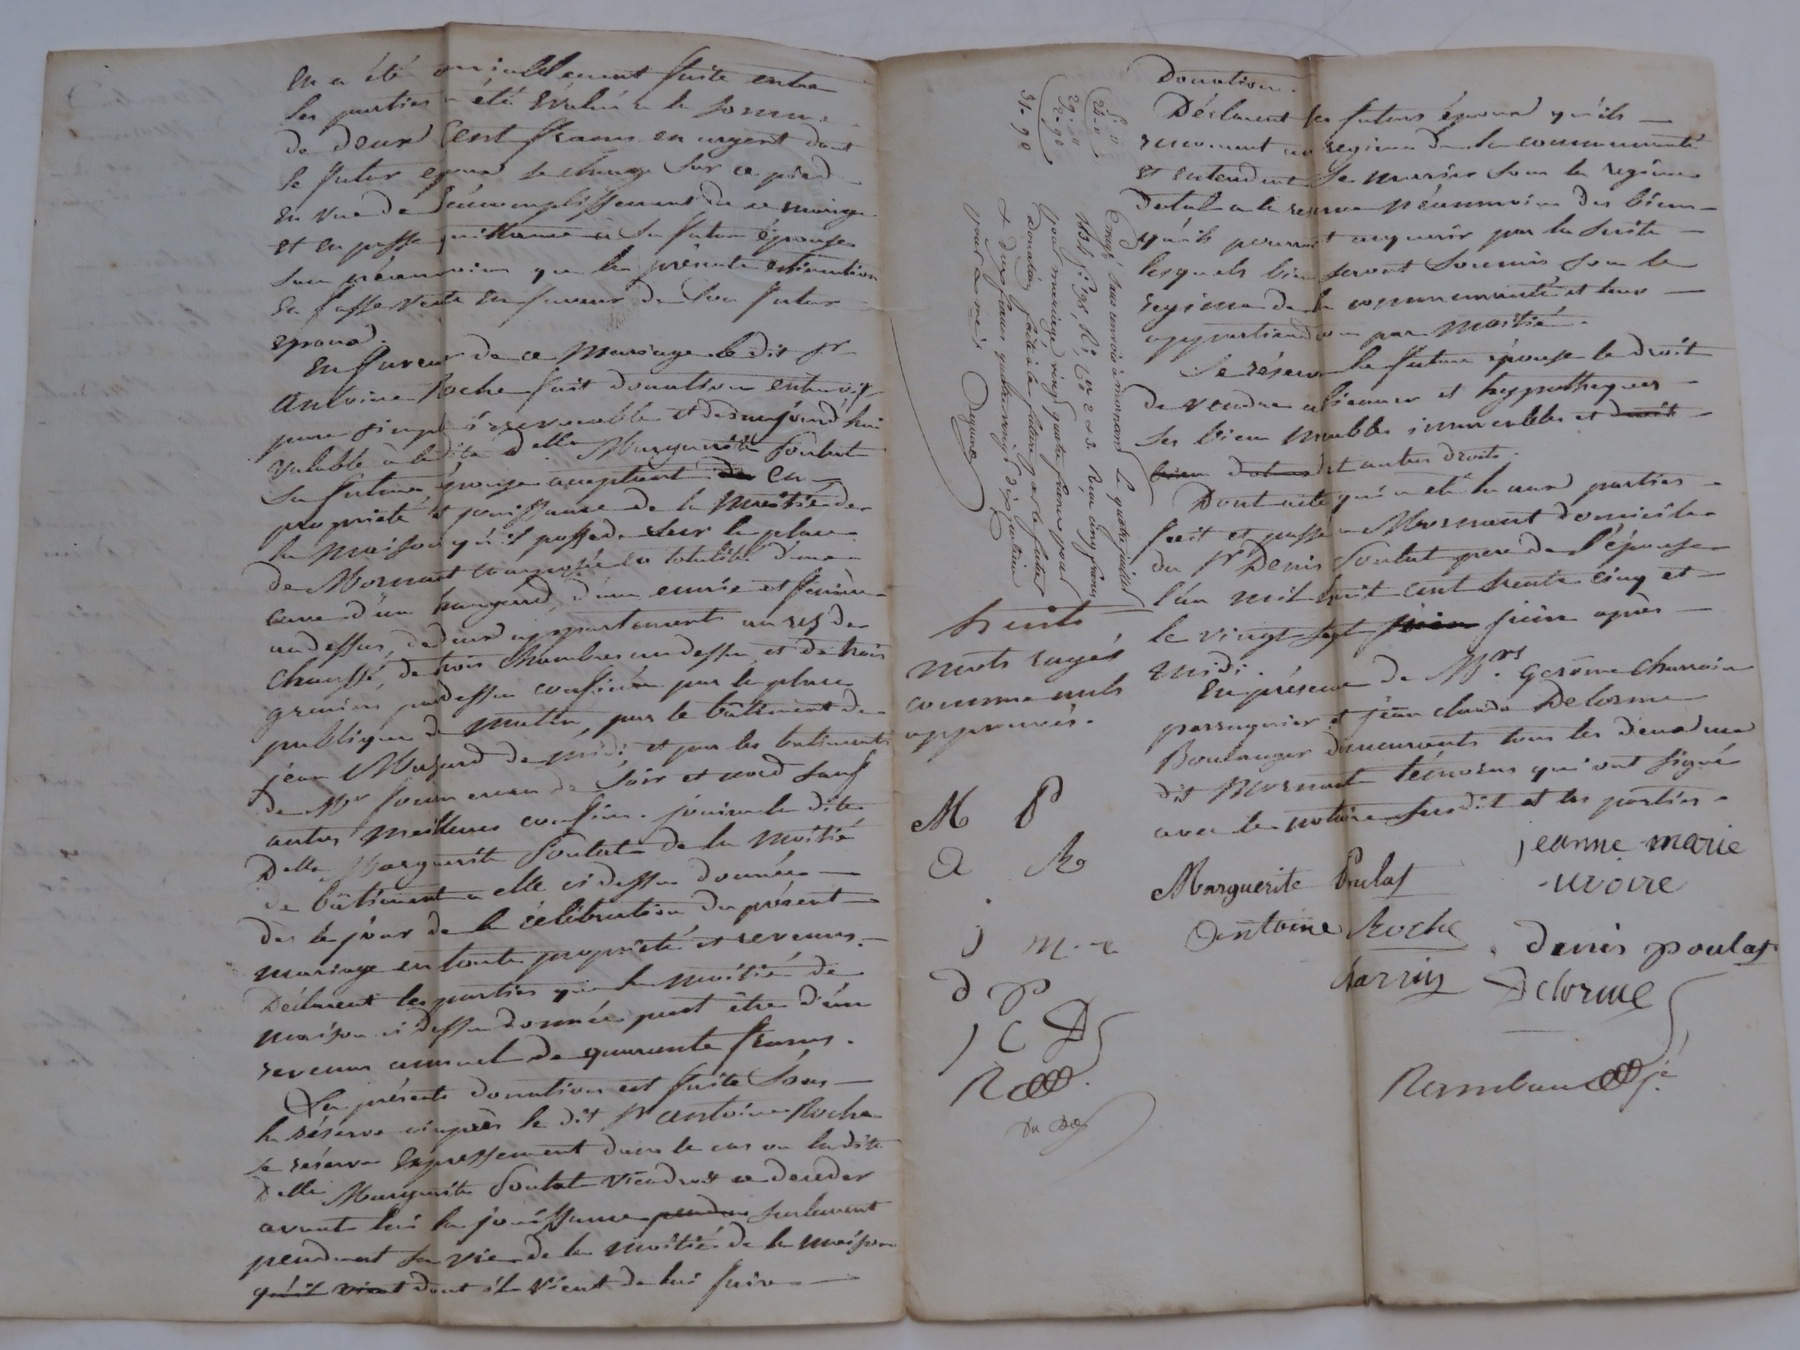 en a été amiablement faite entre
les parties a été évalué a la somme
de deux cent francs en argent dont
le futur epoux se charge sur ce pied
en vue de l'accomplissement du ce mariage
et en passe quittance a sa future épouse
sans néanmoins que la présente estimation
en fasse vente en faveur de son futur
epoux.
En faveur de ce mariage le dit Sr
Antoine Roche fait donation entrevifs
pure simple irrevocable et des aujourd'hui
valable a la dite delle Marguerite Poulat
sa future épouse acceptant en
propriété et jouissance de la moitié de
la maison qu'il possede sur la place
de Mornant composée en totalité d'une
cave d'un hangard, d'une ecurie et feniere
au dessus, de deux appartements au rez de
chaussé, de trois chambres au dessus et de trois
greniers par dessus confinée par la place
publique de matin, par le bâtiment de
jean Mazard de midi et par les batiments
de Mr de soir et nord sauf
autres meilleurs confins. jouira la dite
Delle Marguerite Poulat de la moitié
de bâtiment a elle ci dessus donnée
des le jour de la célébration du présent
mariage en toute propriété et revenus.
Déclarent les parties que la moitié de
maison ci dessus donnée peut être d'un
revenu annuel de quarante francs.
La présente donation est faite sous
la réserve ci après le dit Sr antoine Roche
se réserve expressement dans le cas ou la dite
delle Marguerite Poulat viendrait a deceder
avant lui la jouissance pendan seulement
pendant sa vie de la moitié de la maison
qu'il vient dont il vient de lui faire
Donation.
Déclarent les futurs époux qu'ils
renoncent au regime de la communauté
et entendent se marier sous le regime
Dotal a la reserve néanmoins des biens
qu'ils pourront acquerir par la suite
lesquels biens seront soumis sous le
regime de la communauté et leur
appartiendront par moitié.
Se réserve la future épouse le droit
de vendre aliéner et hypothequer
ses bien meubles immeubles et droits
bien dotaux et autres droits.
Dont acte qui a été lu aux parties
fait et passé a Mornant domicile
du Sr Denis Poulat pere de l'épouse
l'an mil huit cent trente cinq et
le vingt sept juin juin après
midi.
En présence de Mrs. Gerôme Charrin
perruquier et jean claude Delorme
Boulanger demeurants tous les deux au
dit Mornant témoins qui ont signé
avec le notaire susdit et les parties.
31-90
Enregistré sans renvoi à mornant le quatre juillet
1835 f. 195, Ro, Cs 2 et 3. Reçu cinq francs
pour mariage, vingt quatre francs pour
Donation faite à la future par le futur
& deux francs quatre vingt dix centimes
pour demi
trente
mots rayés
comme nuls
approuvés.
M P
A Ro
J M. u
D P
J C D
R
Marguerite Poulat
jeanne marie
uvoire
Antoine Roche
denis poulat
charrin
Delorme
Rambau